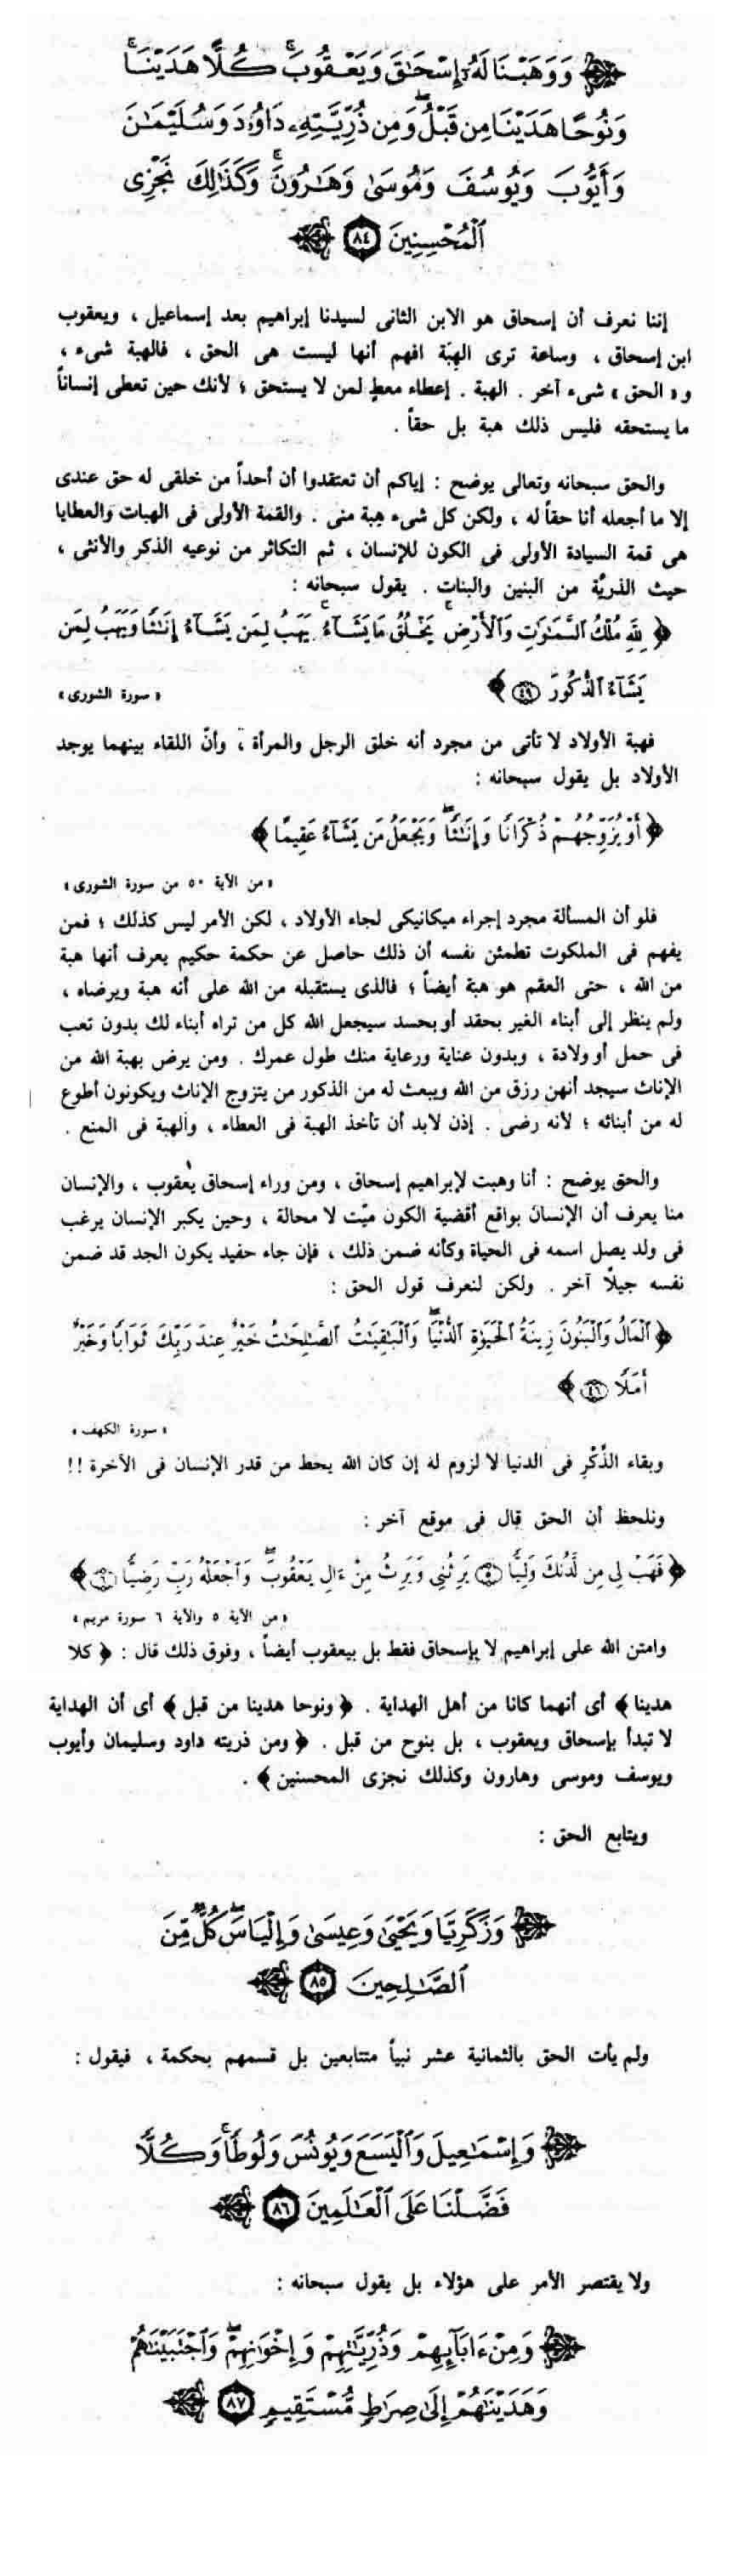 وَوَهَبْنَا لَهُۥٓ إِسْحَٰقَ وَيَعْقُوبَ ۚ كُلًّا هَدَيْنَا ۚ
وَنُوحًا هَدَيْنَا مِن قَبْلُ ۖ وَمِن ذُرِّيَّتِهِۦ دَاوُۥدَ وَسُلَيْمَٰنَ
وَأَيُّوبَ وَيُوسُفَ وَمُوسَىٰ وَهَٰرُونَ ۚ وَكَذَٰلِكَ نَجْزِى
ٱلْمُحْسِنِينَ ٨٤
إننا نعرف أن إسحاق هو الابن الثانى لسيدنا إبراهيم بعد إسماعيل ، ويعقوب
ابن إسحاق ، وساعة ترى الهِبَة افهم أنها ليست هى الحق ، فالهبة شىء ،
و « الحق » شىء آخر . الهبة . إعطاء معطٍ لمن لا يستحق ؛ لأنك حين تعطى إنساناً
ما يستحقه فليس ذلك هبة بل حقاً .
والحق سبحانه وتعالى يوضح : إياكم أن تعتقدوا أن أحداً من خلقى له حق عندى
إلا ما أجعله أنا حقاً له ، ولكن كل شىء هِبة منى . والقمة الأولى فى الهبات والعطايا
هى قمة السيادة الأولى فى الكون للإنسان ، ثم التكاثر من نوعيه الذكر والأنثى ،
حيث الذريّة من البنين والبنات . يقول سبحانه :
﴿ لِلَّهِ مُلْكُ ٱلسَّمَٰوَٰتِ وَٱلْأَرْضِ ۚ يَخْلُقُ مَا يَشَآءُ ۚ يَهَبُ لِمَن يَشَآءُ إِنَٰثًا وَيَهَبُ لِمَن
يَشَآءُ ٱلذُّكُورَ ٤٩ ﴾
« سورة الشورى »
فهبة الأولاد لا تأتى من مجرد أنه خلق الرجل والمرأة ، وأنّ اللقاء بينهما يوجد
الأولاد بل يقول سبحانه :
﴿ أَوْ يُزَوِّجُهُمْ ذُكْرَانًا وَإِنَٰثًا ۖ وَيَجْعَلُ مَن يَشَآءُ عَقِيمًا ﴾
« من الآية ٥٠ من سورة الشورى »
فلو أن المسألة مجرد إجراء ميكانيكى لجاء الأولاد ، لكن الأمر ليس كذلك ؛ فمن
يفهم فى الملكوت تطمئن نفسه أن ذلك حاصل عن حكمة حكيم يعرف أنها هبة
من الله ، حتى العقم هو هبة أيضاً ؛ فالذى يستقبله من الله على أنه هبة ويرضاه ،
ولم ينظر إلى أبناء الغير بحقد أو بحسد سيجعل الله كل من تراه أبناء لك بدون تعب
فى حمل أو ولادة ، وبدون عناية ورعاية منك طول عمرك . ومن يرض بهبة الله من
الإناث سيجد أنهن رزق من الله ويبعث له من الذكور من يتزوج الإناث ويكونون أطوع
له من أبنائه ؛ لأنه رضى . إذن لابد أن تأخذ الهبة فى العطاء ، والهبة فى المنع .
والحق يوضح : أنا وهبت لإبراهيم إسحاق ، ومن وراء إسحاق يعقوب ، والإنسان
منا يعرف أن الإنسان بواقع أقضية الكون ميّت لا محالة ، وحين يكبر الإنسان يرغب
فى ولد يصل اسمه فى الحياة وكأنه ضمن ذلك ، فإن جاء حفيد يكون الجد قد ضمن
نفسه جيلاً آخر . ولكن لنعرف قول الحق :
﴿ ٱلْمَالُ وَٱلْبَنُونَ زِينَةُ ٱلْحَيَوٰةِ ٱلدُّنْيَا ۖ وَٱلْبَٰقِيَٰتُ ٱلصَّٰلِحَٰتُ خَيْرٌ عِندَ رَبِّكَ ثَوَابًا وَخَيْرٌ
أَمَلًا ٤٦ ﴾
« سورة الكهف »
وبقاء الذِّكْرِ فى الدنيا لا لزوم له إن كان الله يحط من قدر الإنسان فى الآخرة !!
ونلحظ أن الحق قال فى موقع آخر :
﴿ فَهَبْ لِى مِن لَّدُنكَ وَلِيًّا ٥ يَرِثُنِى وَيَرِثُ مِنْ ءَالِ يَعْقُوبَ ۖ وَٱجْعَلْهُ رَبِّ رَضِيًّا ٦ ﴾
« من الآية ٥ والآية ٦ سورة مريم »
وامتن الله على إبراهيم لا بإسحاق فقط بل بيعقوب أيضاً ، وفوق ذلك قال : ﴿ كلا
هدينا ﴾ أى أنهما كانا من أهل الهداية . ﴿ ونوحا هدينا من قبل ﴾ أى أن الهداية
لا تبدأ بإسحاق ويعقوب ، بل بنوح من قبل . ﴿ ومن ذريته داود وسليمان وأيوب
ويوسف وموسى وهارون وكذلك نجزى المحسنين ﴾ .
ويتابع الحق :
وَزَكَرِيَّا وَيَحْيَىٰ وَعِيسَىٰ وَإِلْيَاسَ ۖ كُلٌّ مِّنَ
ٱلصَّٰلِحِينَ ٨٥
ولم يأت الحق بالثمانية عشر نبياً متتابعين بل قسمهم بحكمة ، فيقول :
وَإِسْمَٰعِيلَ وَٱلْيَسَعَ وَيُونُسَ وَلُوطًا ۚ وَكُلًّا
فَضَّلْنَا عَلَى ٱلْعَٰلَمِينَ ٨٦
ولا يقتصر الأمر على هؤلاء بل يقول سبحانه :
وَمِنْ ءَابَآئِهِمْ وَذُرِّيَّٰتِهِمْ وَإِخْوَٰنِهِمْ ۖ وَٱجْتَبَيْنَٰهُمْ
وَهَدَيْنَٰهُمْ إِلَىٰ صِرَٰطٍ مُّسْتَقِيمٍ ٨٧